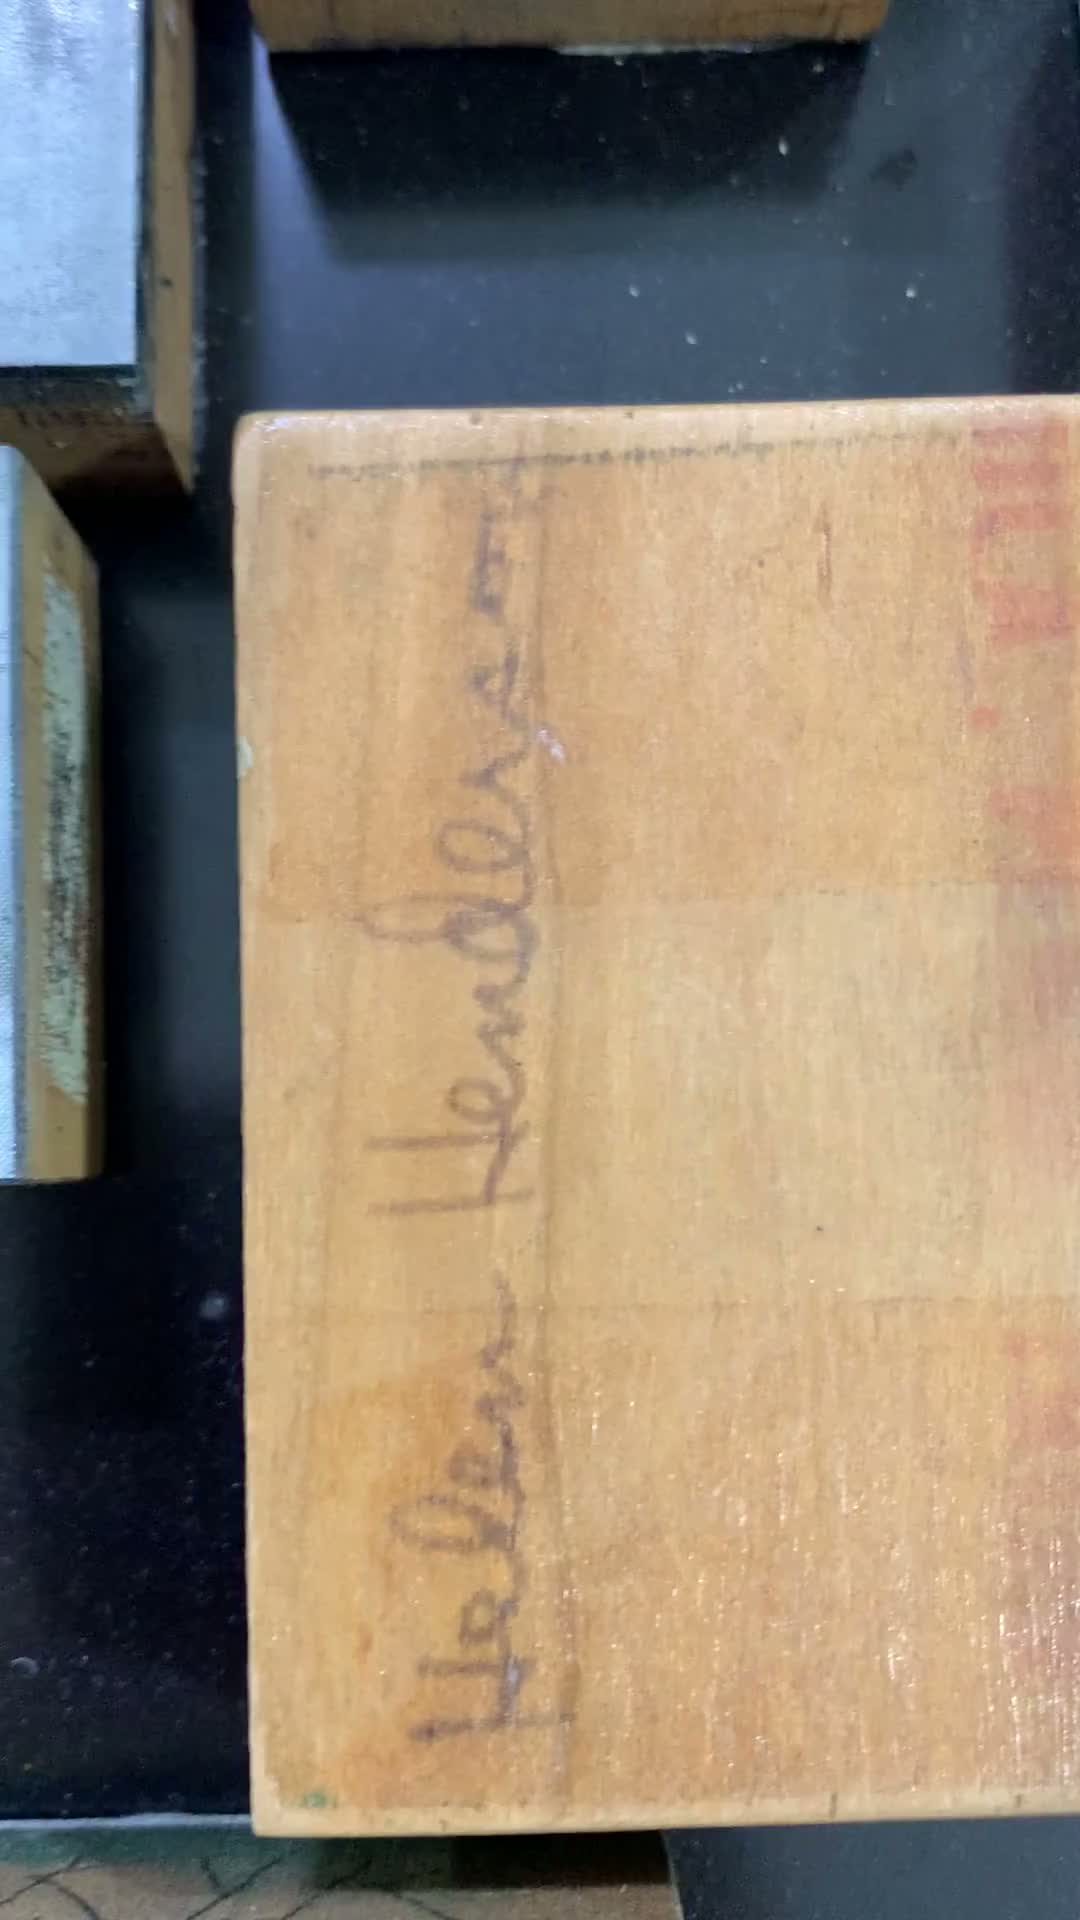 Helen Henderson